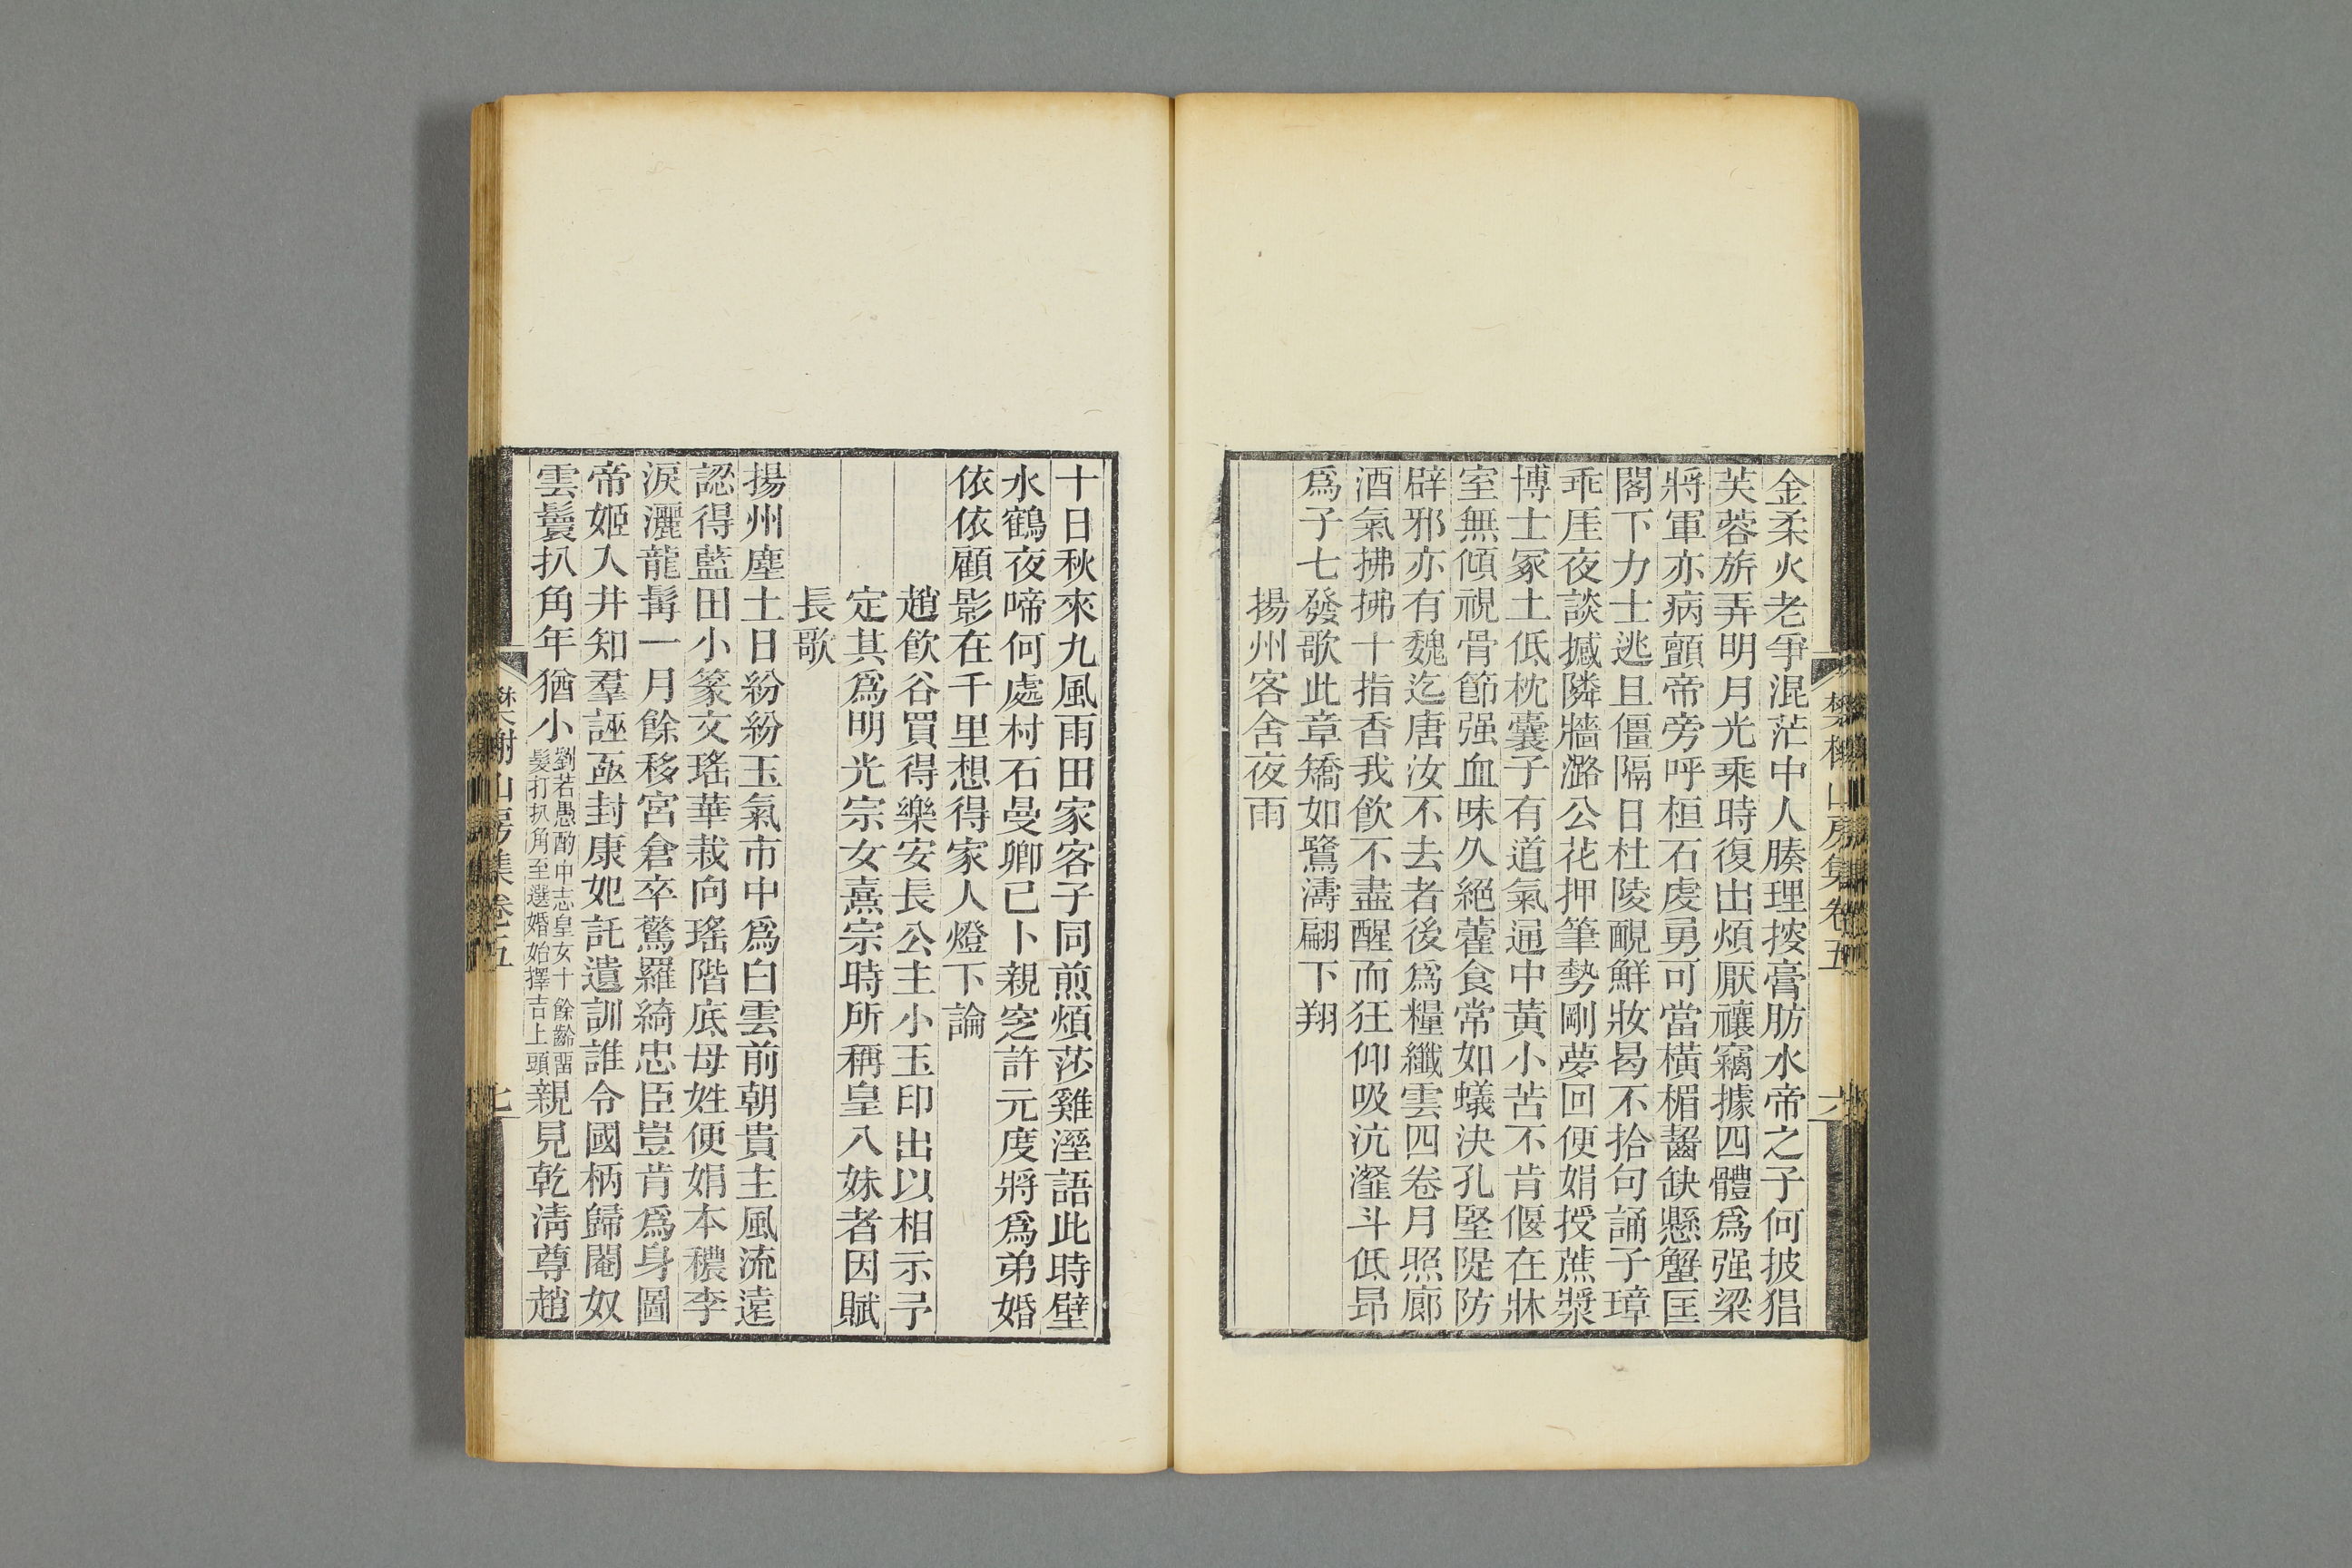 樊榭山房集卷五
六
金柔火老爭混茫中人腠理按膏肪水帝之子何披猖
芙蓉旂弄明月光乘時復出煩厭禳竊據四體爲强梁
將軍亦病顫帝旁呼桓石虔勇可當橫楣齧缺懸蟹匡
閣下力士逃且僵隔日杜陵靦鮮妝曷不拾句誦子璋
乖厓夜談撼隣牆潞公花押筆勢剛夢回便娟授蔗漿
博士冢土低枕囊子有道氣通中黃小苦不肯偃在牀
室無傾視骨節强血味久絕藿食常如蟻決孔堅隄防
辟邪亦有魏迄唐汝不去者後爲糧纖雲四卷月照廊
酒氣拂拂十指香我飲不盡醒而狂仰吸沆瀣斗低昂
爲子七發歌此章矯如鷺濤翩下翔
揚州客舍夜雨
十日秋來九風雨田家客子同煎煩莎雞溼語此時壁
水鶴夜啼何處村石曼卿已卜親窆許元度將爲弟婚
依依顧影在千里想得家人燈下論
趙飮谷買得樂安長公主小玉印出以相示予
定其爲明光宗女熹宗時所稱皇八妹者因賦
長歌
揚州塵土日紛紛玉氣市中爲白雲前朝貴主風流遠
認得藍田小篆文瑤華栽向瑤階底母姓便娟本穠李
淚灑龍髯一月餘移宮倉卒驚羅綺忠臣豈肯爲身圖
帝姬入井知羣誣亟封康妃託遺訓誰令國柄歸閹奴
雲鬟扒角年猶小劉若愚酌中志皇女十餘齡畱髮打扒角至選婚始擇吉上頭親見乾淸尊趙
樊榭山房集卷五
七